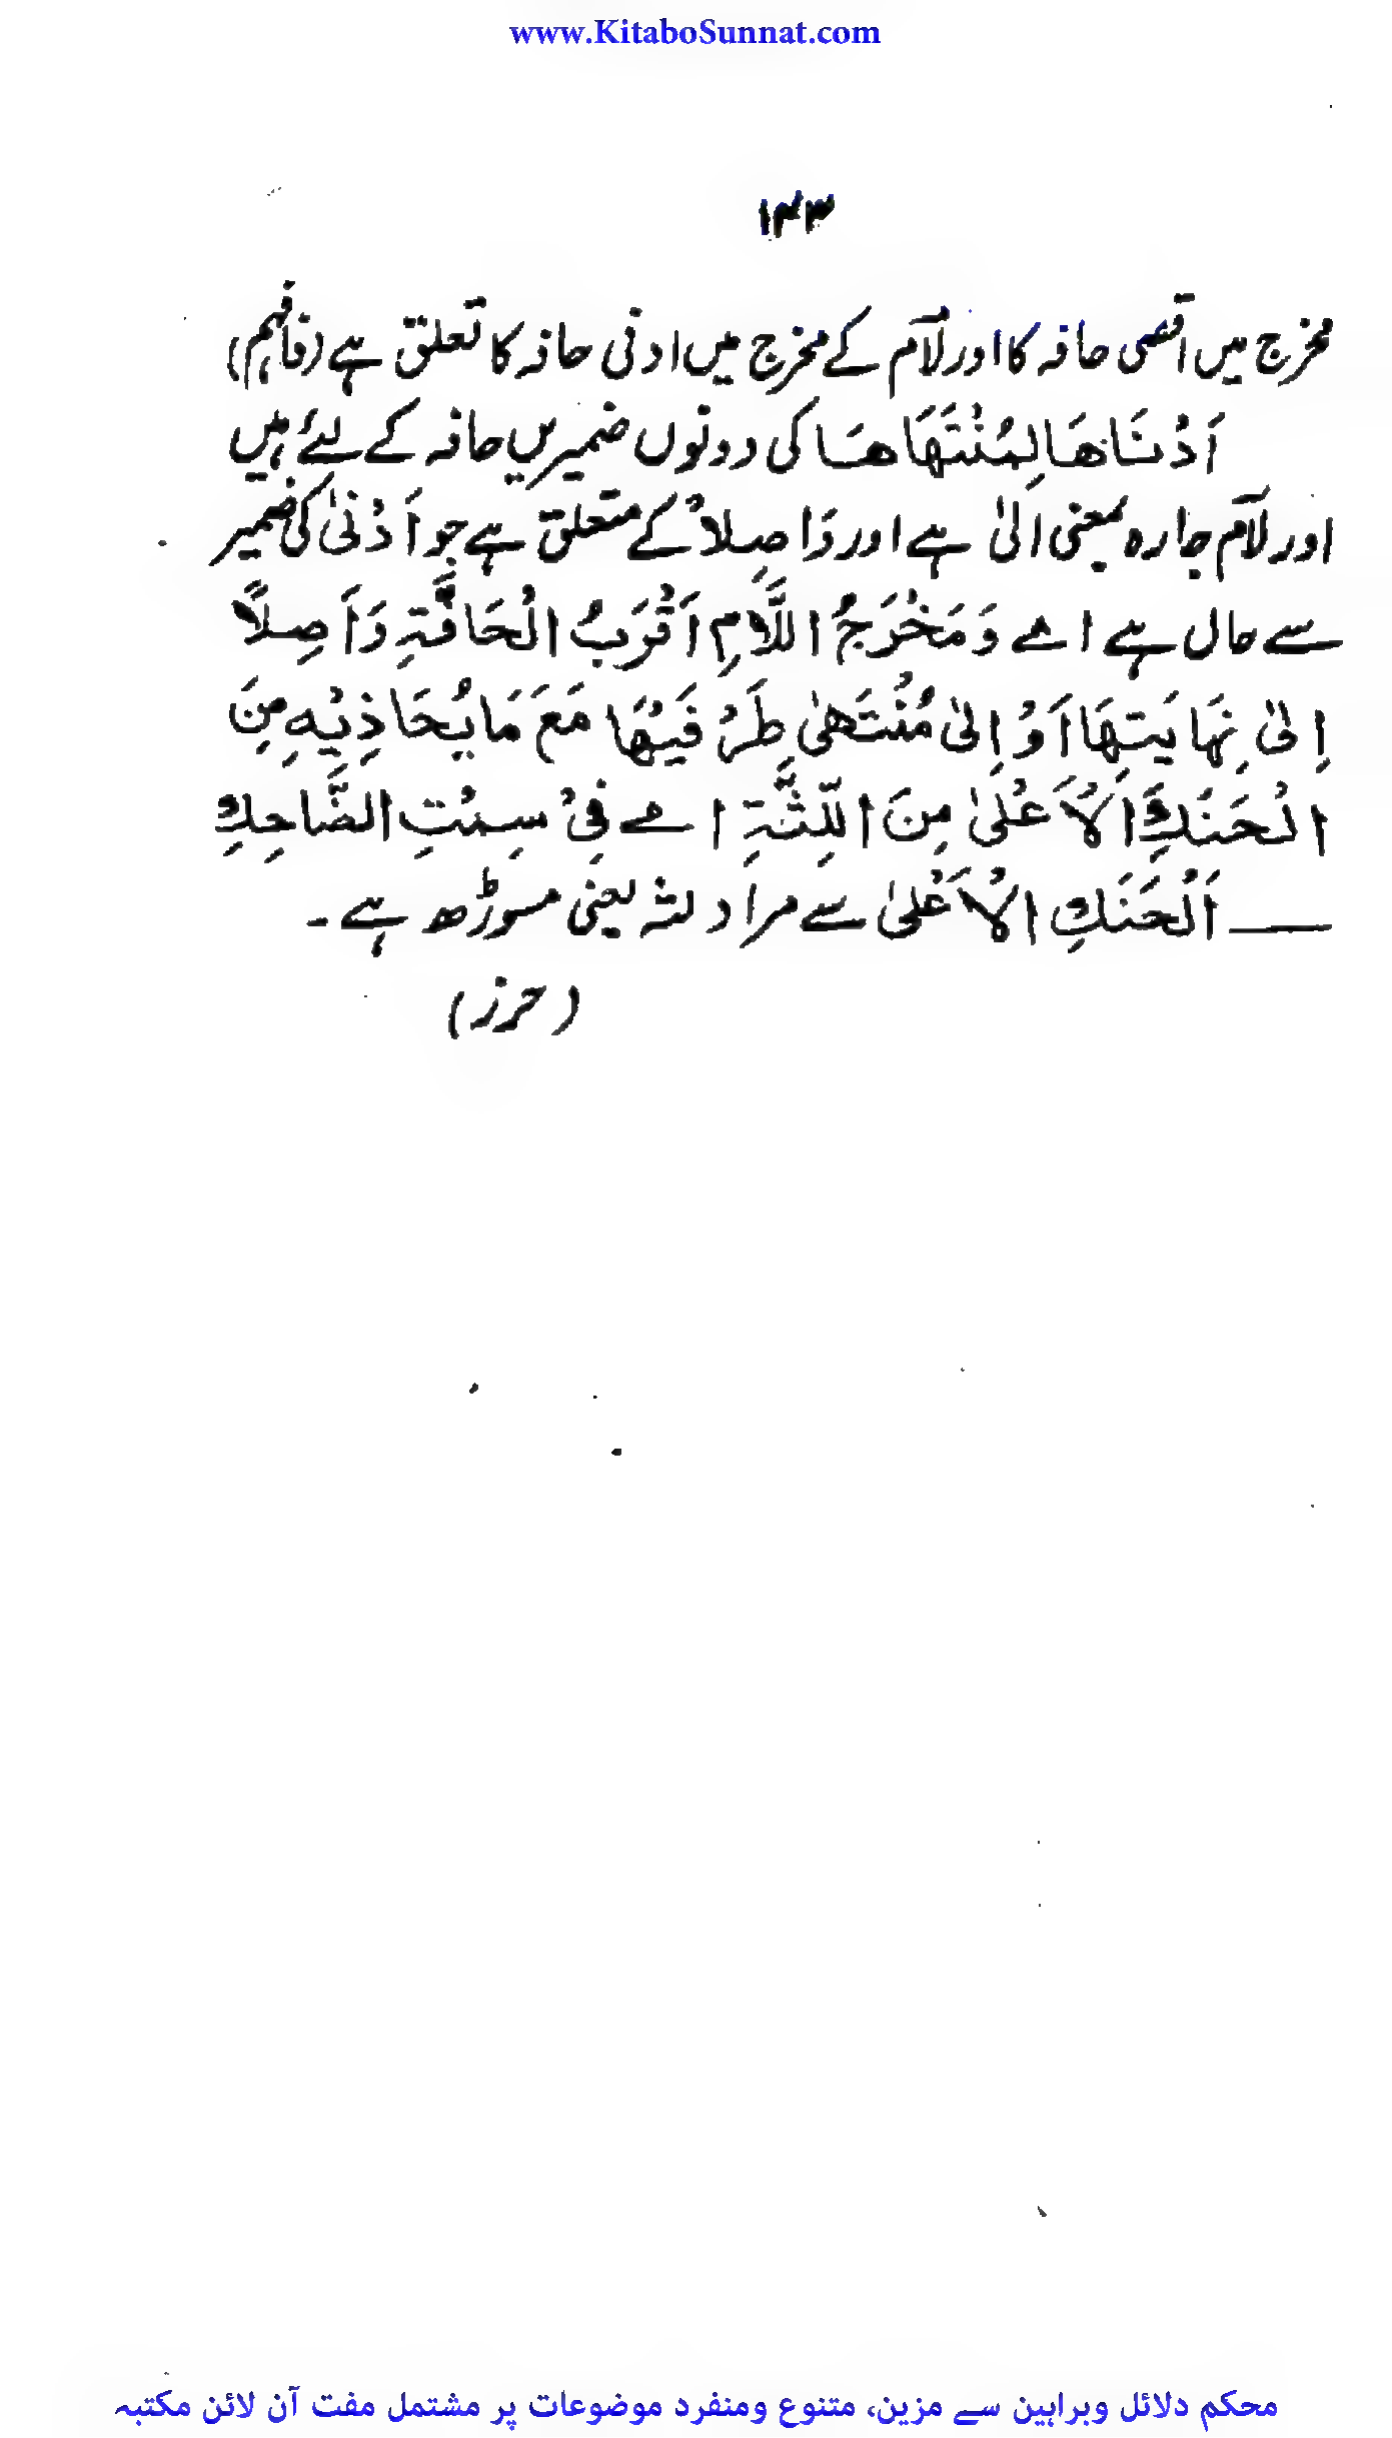 www.KitaboSunnat.com
۱۴۳
مخرج میں اقصی حافہ کا اور لام کے مخرج میں ادنی حافہ کا تعلق ہے (فافہم)
اَدْنَاھَا لِمُنْتَھَاھَا کی دونوں ضمیریں حافہ کے لیئے ہیں
اور لام جارہ بمعنی الیٰ ہے اور وَاصِلاً کے متعلق ہے جو اَدْنیٰ کی ضمیر
سے حال ہے اے وَمَخْرَجُ اللَّامِ اَقْرَبُ الْحَافَّۃِ وَاَصِلاً
اِلیٰ نِھَایَتِھَا اَوْ اِلیٰ مُنْتَھیٰ طَرْفَیْھَا مَعَ مَا یُحَاذِیْہِ مِنَ
الْحَنَكِ الْاَعْلیٰ مِنَ اللِّثَّۃِ اے فِیْ سِمْتِ الضَّاحِكِ
ــــ اَلْحَنَكِ الْاَعْلیٰ سے مراد لثہ یعنی مسوڑھ ہے ۔
(حرز)
محکم دلائل وبراہین سے مزین، متنوع ومنفرد موضوعات پر مشتمل مفت آن لائن مکتبہ